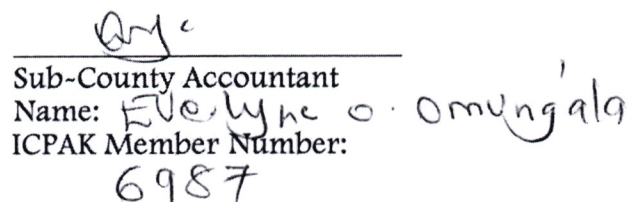 Sub-County Accountant
Name: Evelyne O. Omung'ala
ICPAK Member Number:
6987